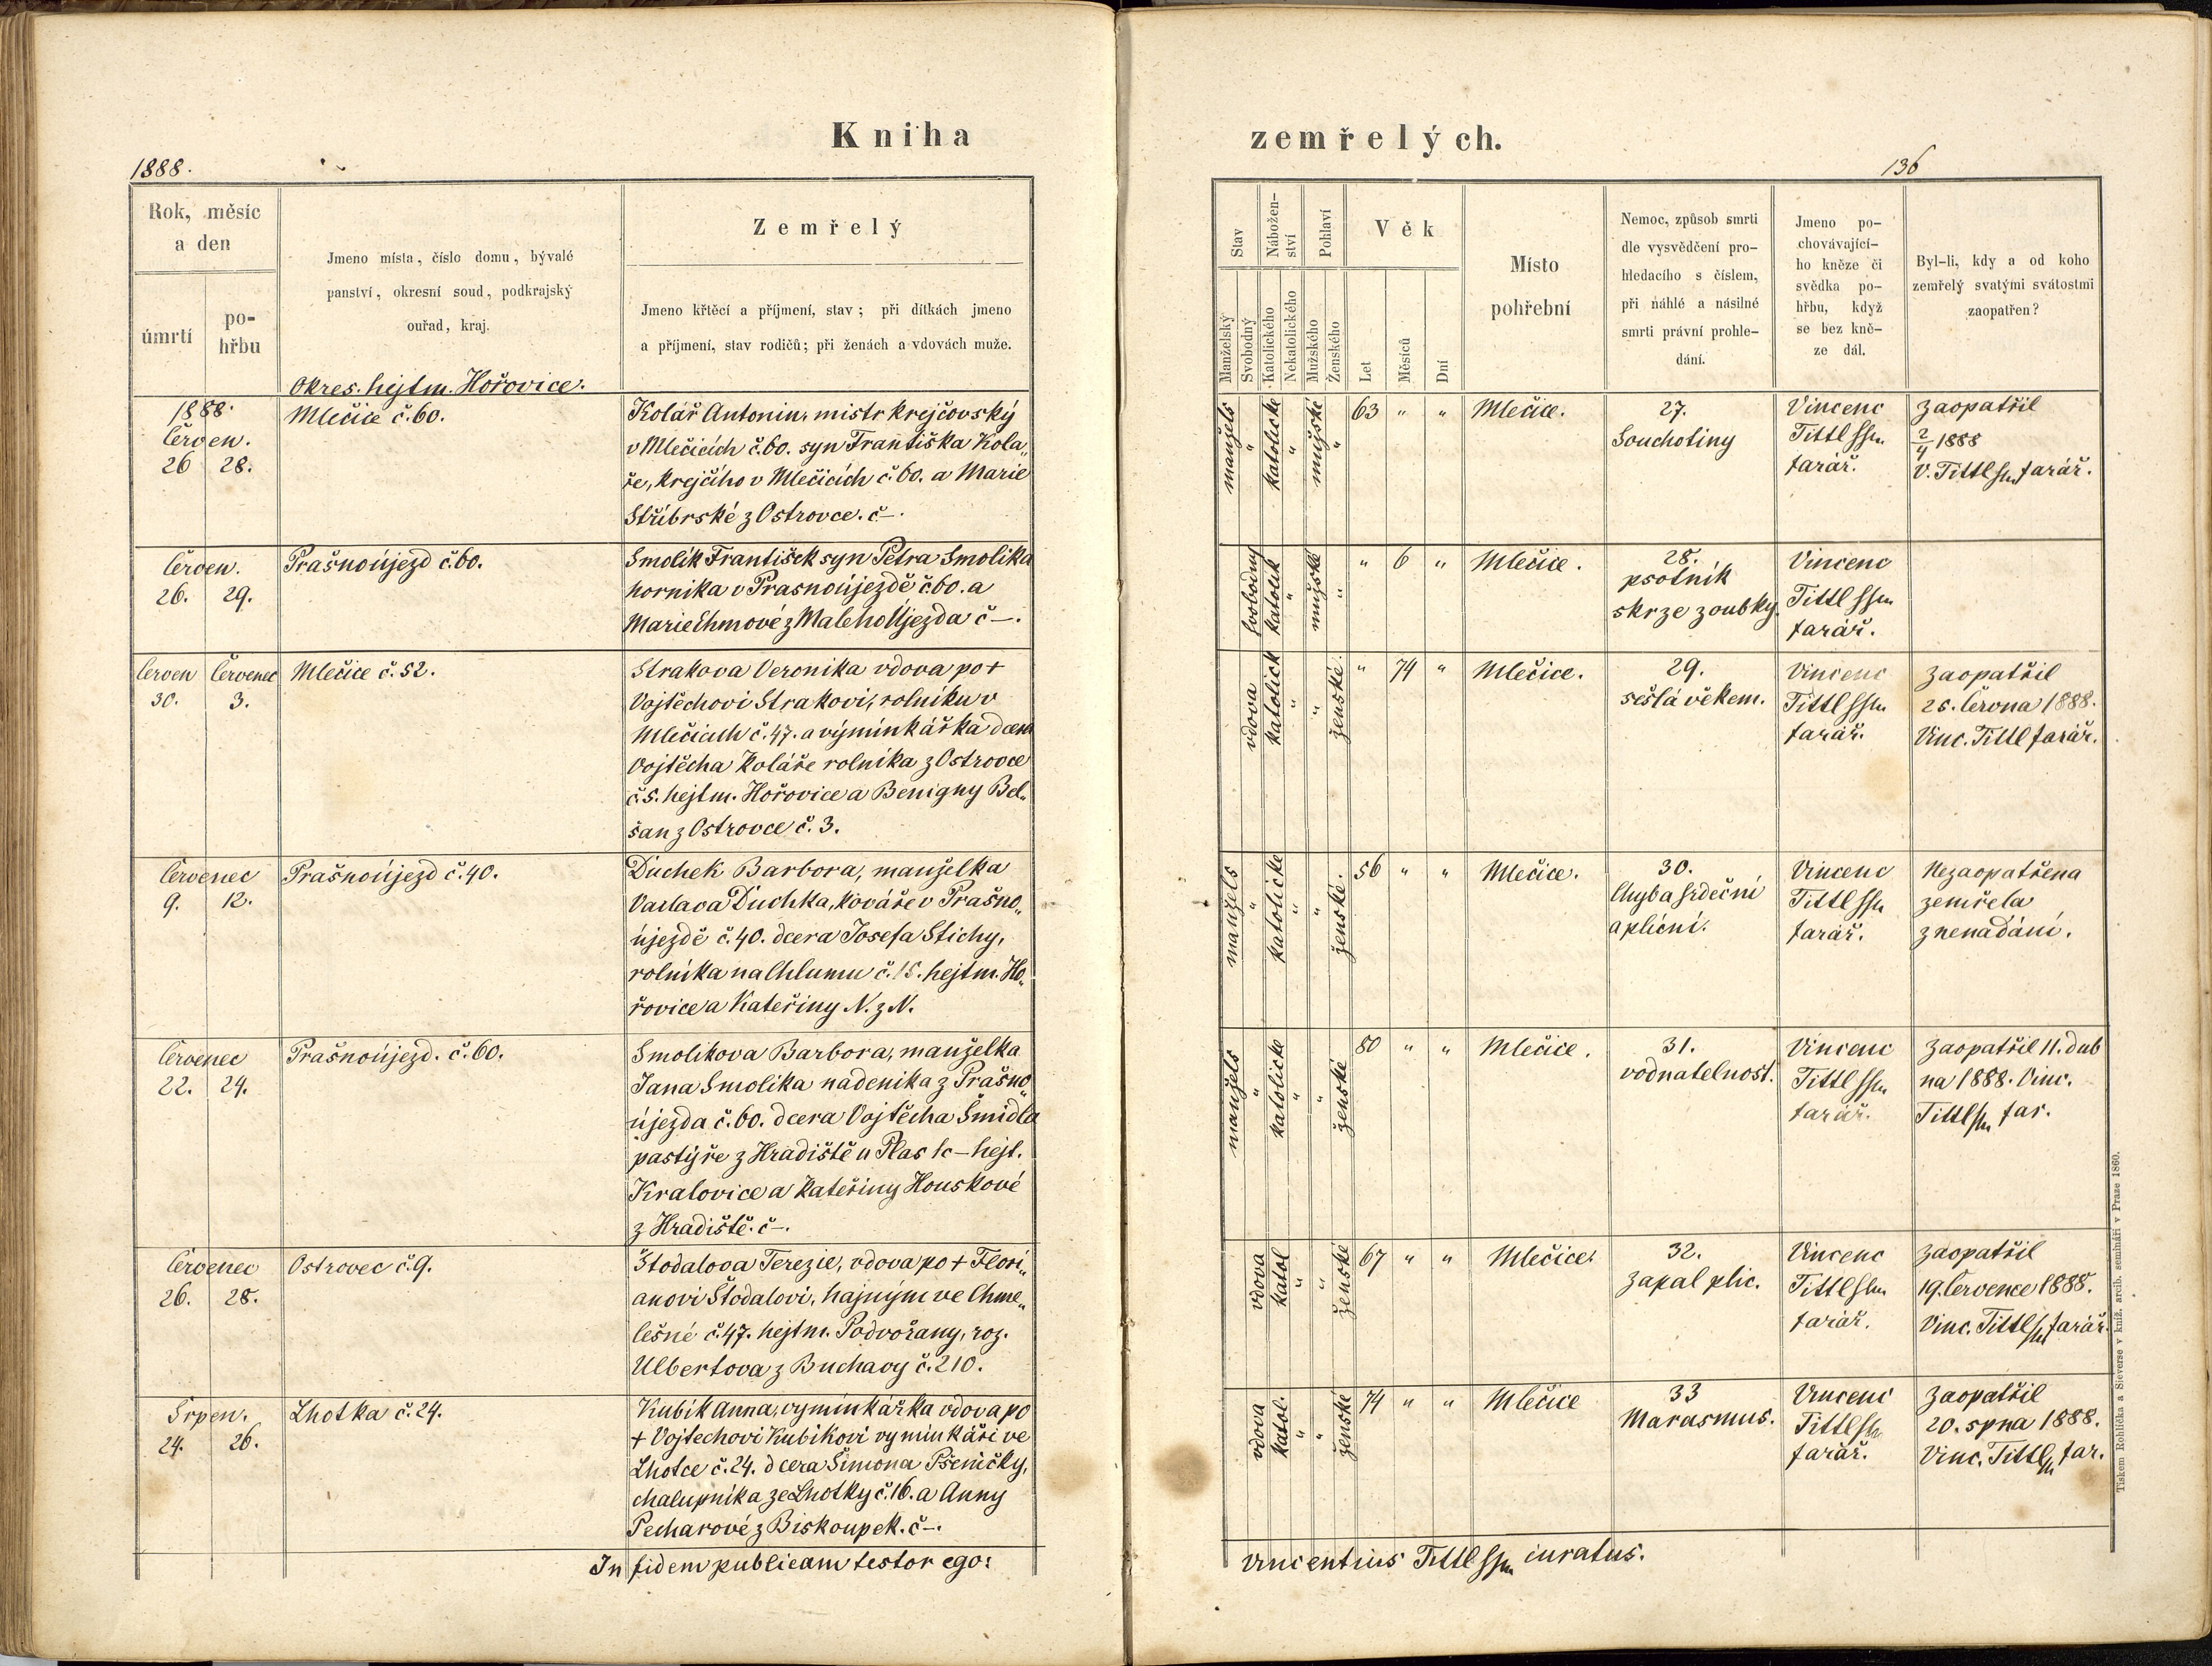 Kniha
1888.
Rok, měsíc
a den
úmrtí
po-
hřbu
Jmeno místa, číslo domu, bývalé
panství, okresní soud, podkrajský
ouřad, kraj.
Okres. hejtm. Hořovice.
Zemřelý
Jmeno křtěcí a příjmení, stav; při dítkách jmeno
a příjmení, stav rodičů; při ženách a vdovách muže.
1888.
Červen.
26 28.
Mlečice č. 60.
Kolář Antonin, mistr krejčovský
v Mlečicích č. 60. syn Františka Kola„
ře, krejčího v Mlečicích č. 60. a Marie
Stříbrské z Ostrovce. č–.
Červen.
26. 29.
Prašnoújezd č. 60.
Smolík František syn Petra Smolika
hornika v Prasnoújezdě č. 60. a
Marie Chmové z Maleho Újezda č–.
Červen Červenec
30. 3.
Mlečice č. 52.
Strakova Veronika vdova po +
Vojtěchovi Strakovi, rolníku v
Mlečicich č. 47. a výminkářka dcera
Vojtěcha Koláře rolníka z Ostrovce
č. 5. hejtm. Hořovice a Benigny Bel„
šan z Ostrovce č. 3.
Červenec
9. 12.
Prašnoújezd č. 40.
Duchek Barbora, manželka
Vaclava Duchka, kováře v Prašno„
újezdě č. 40. dcera Josefa Stichy,
rolníka na Chlumu č. 15. hejtm. Ho„
řovice a Kateřiny N. z N.
Červenec
22. 24.
Prašnoújezd. č. 60.
Smolikova Barbora, manželka
Jana Smolika nadenika z Prašno„
újezda č. 60. dcera Vojtěcha Šmidla
pastýře z Hradiště u Plas č– hejt.
Kralovice a Kateřiny Houskové
z Hradiště. č–.
Červenec
26. 28.
Ostrovec č. 9.
Štodalova Terezie, vdova po + Flori„
anovi Štodalovi, hajným ve Chme„
lešné č. 47. hejtm. Podvořany, roz.
Ulbertova z Buchavy č. 210.
Srpen.
24. 26.
Lhotka č. 24.
Kubík Anna, vyminkářka vdova po
+ Vojtechovi Kubikovi vyminkáři ve
Lhotce č. 24. dcera Šimona Pšeničky,
chalupníka ze Lhotky č. 16. a Anny
Pecharové z Biskoupek. č–.
In fidem publicam testor ego:
zemřelých.
136
Stav
Manželský
Svobodný
Nábožen-
ství
Katolického
Nekatolického
Pohlaví
Mužského
Ženského
Věk
Let
Měsíců
Dní
Místo
pohřební
Nemoc, způsob smrti
dle vysvědčení pro-
hledacího s číslem,
při náhlé a násilné
smrti právní prohle-
dání.
Jmeno po-
chovávající-
ho kněze či
svědka po-
hřbu, když
se bez kně-
ze dál.
Byl-li, kdy a od koho
zemřelý svatými svátostmi
zaopatřen?
manžels " katolické " mužské " 63 " " Mlečice.
27.
Souchotiny
Vincenc
Tittl
farář.
Zaopatřil
2/4 1888
V. Tittl farář.
svobodny katolik " mužské " " 6 " Mlečice.
28.
psotník
skrze zoubky.
Vincenc
Tittl
farář.
vdova katolick " " ženské. " 74 " Mlečice.
29.
sešlá věkem.
Vincenc
Tittl
farář.
Zaopatřil
25. června 1888.
Vinc. Tittl farář.
manžels " katolické " " ženské. 56 " " Mlečice.
30.
Chyba srdeční
a plicní.
Vincenc
Tittl
farář.
Nezaopatřena
zemřela
z nenadání.
manžels " katolické " " ženské 80 " " Mlečice.
31.
vodnatelnost.
Vincenc
Tittl
farář.
Zaopatřil 11. dub
na 1888. Vinc.
Tittl far.
vdova katol " " ženské 67 " " Mlečice.
32.
Zapal plic.
Vincenc
Tittl
farář.
Zaopatřil
19. července 1888.
Vinc. Tittl farář.
vdova katol. " " ženské 74 " " Mlečice
33
Marasmus.
Vincenc
Tittl
farář.
Zaopatřil
20. spna 1888.
Vinc. Tittl far.
Vincentius Tittl curatus.
Tiskem Rohlíčka a Sieverse v kníž. arcib. semináři v Praze 1860.